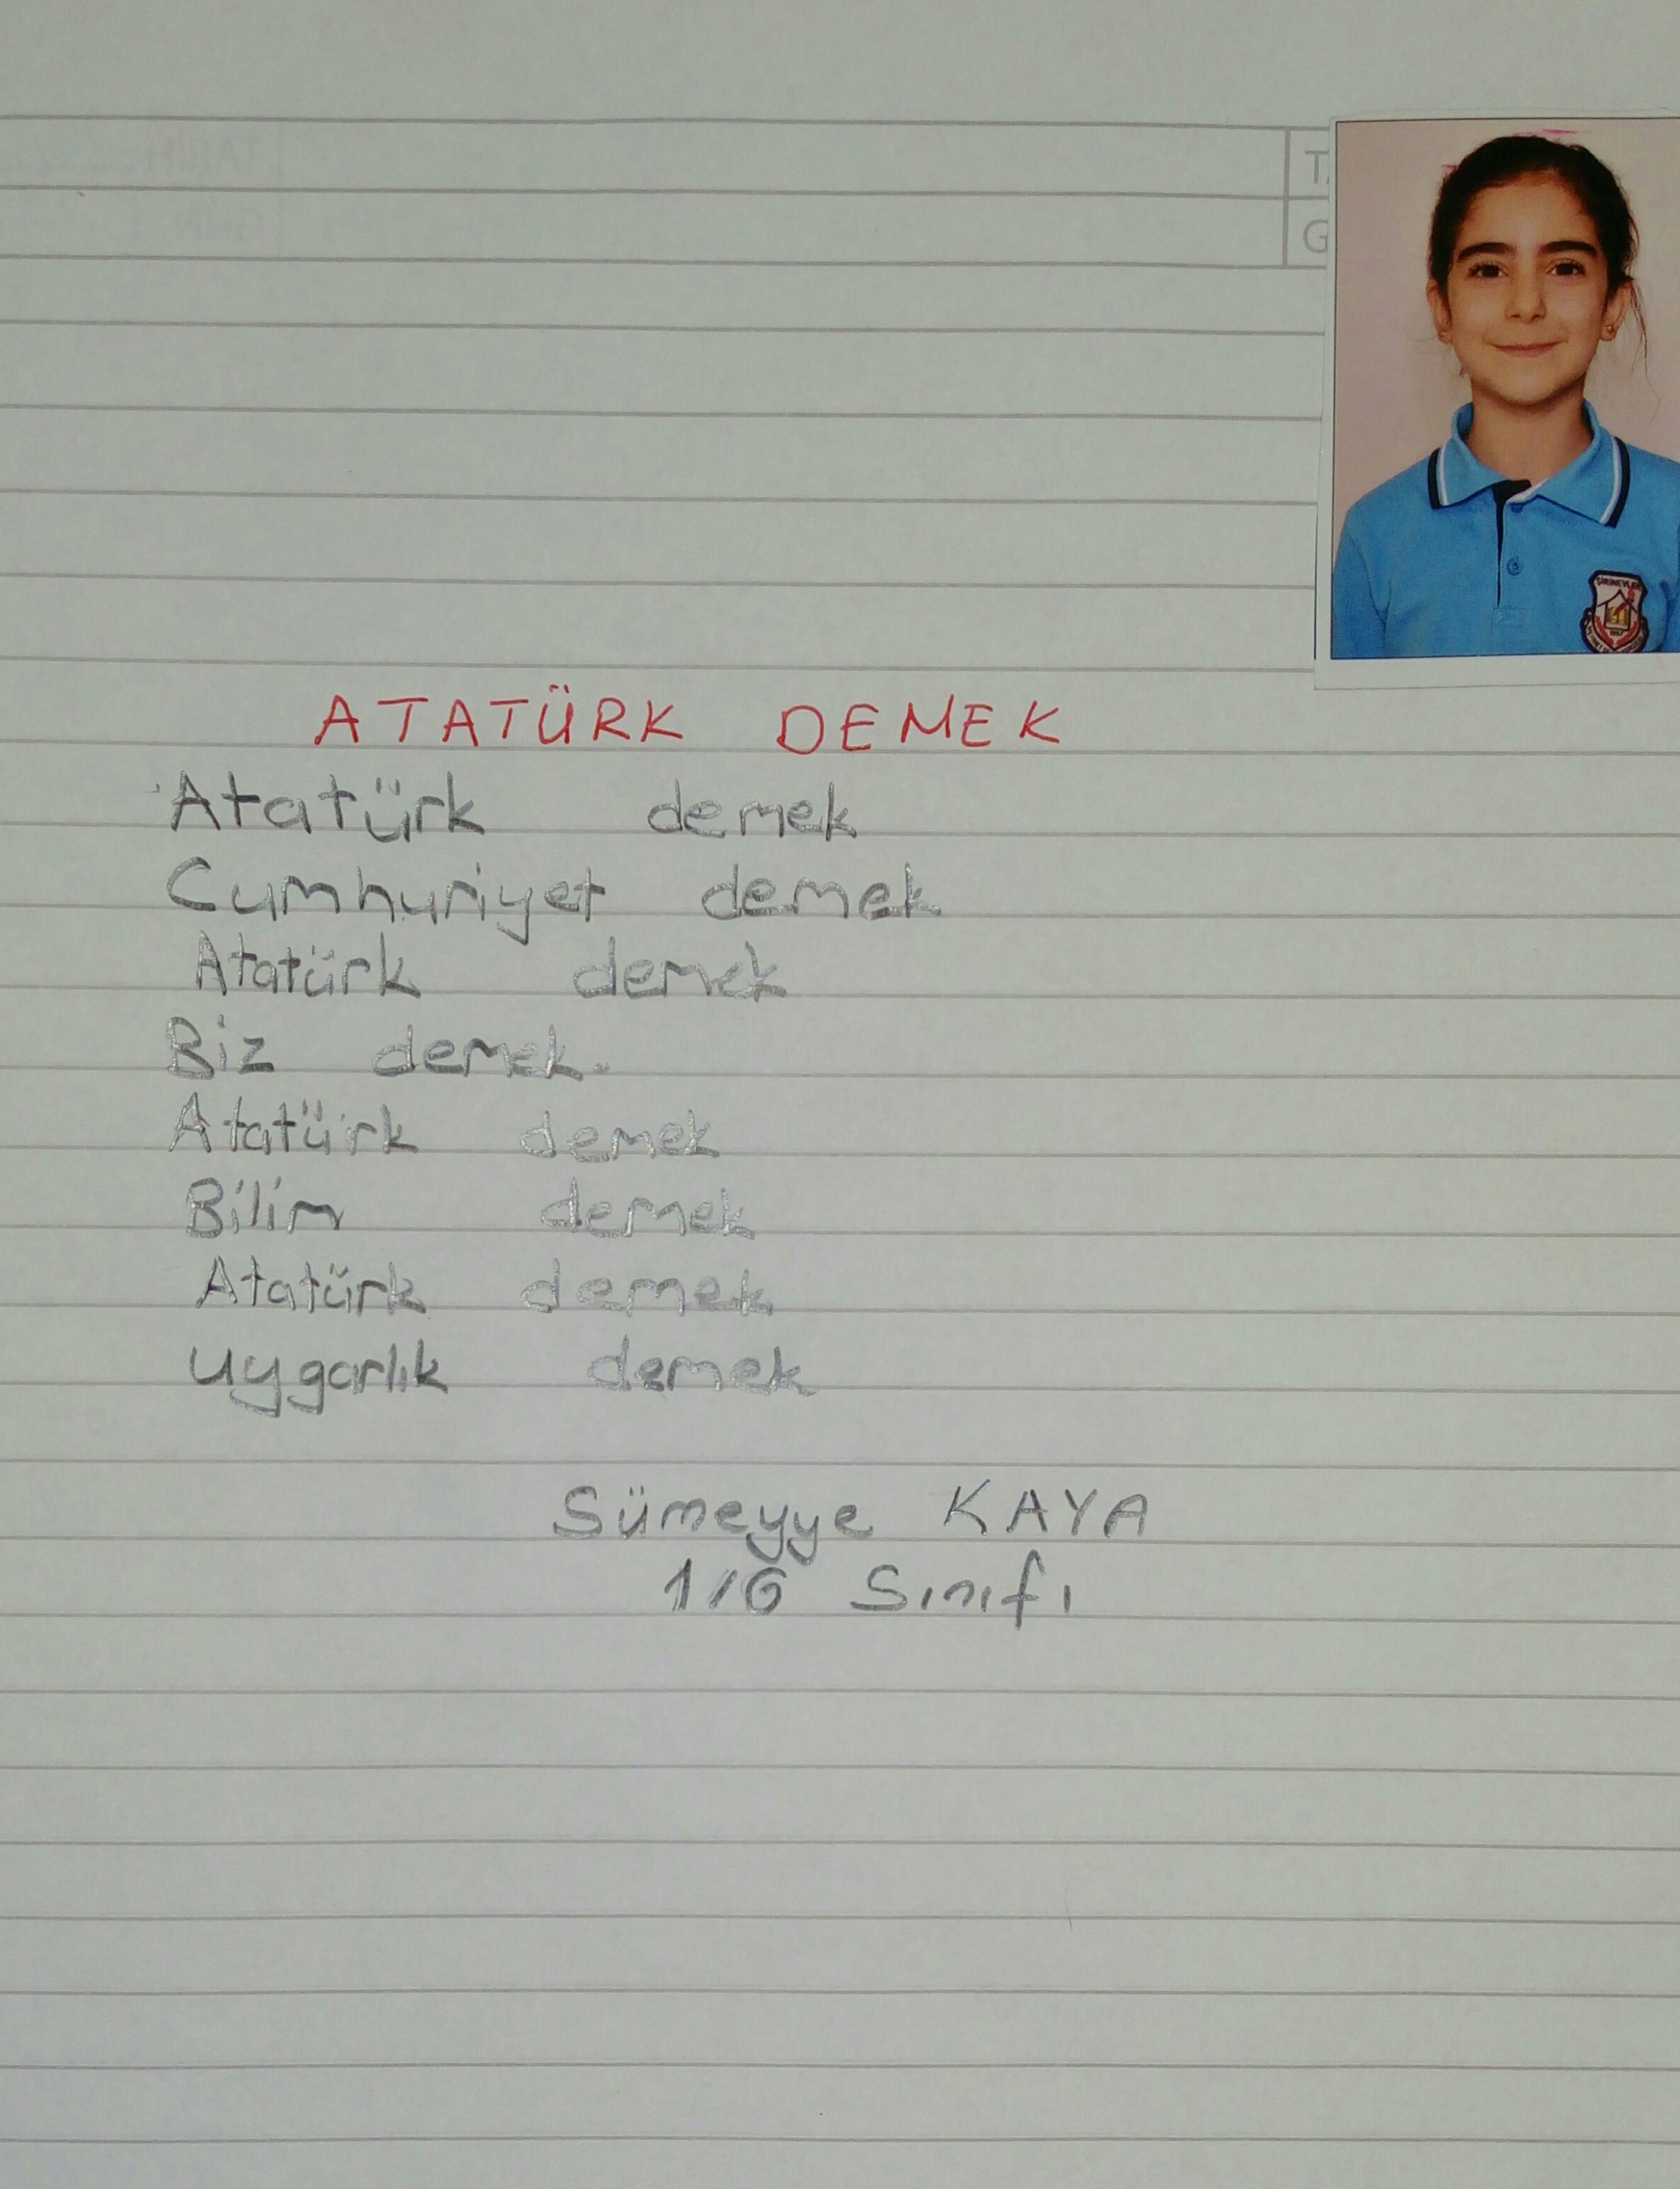 T
G
ATATÜRK DEMEK
Atatürk demek
Cumhuriyet demek.
Atatürk demek
Biz demek.
Atatürk demek
Bilim demek
Atatürk demek
Uygarlık demek
Sümeyye KAYA
1/G Sınıfı